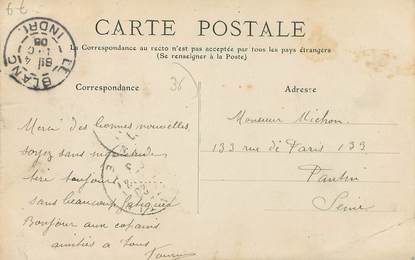 CARTE POSTALE
La Correspondance au recto n'est pas acceptée par tous les pays étrangers
(Se renseigner à la Poste)
Correspondance
Adresse
36
LE BLANC
INDRE
Merci des bonnes nouvelles
soyez sans
tire toujours
sans beaucoup fatiguer
Bonjour aux copains
amitiés à tous
Monsieur Michon.
133 rue de Paris 133
Pantin
Seine